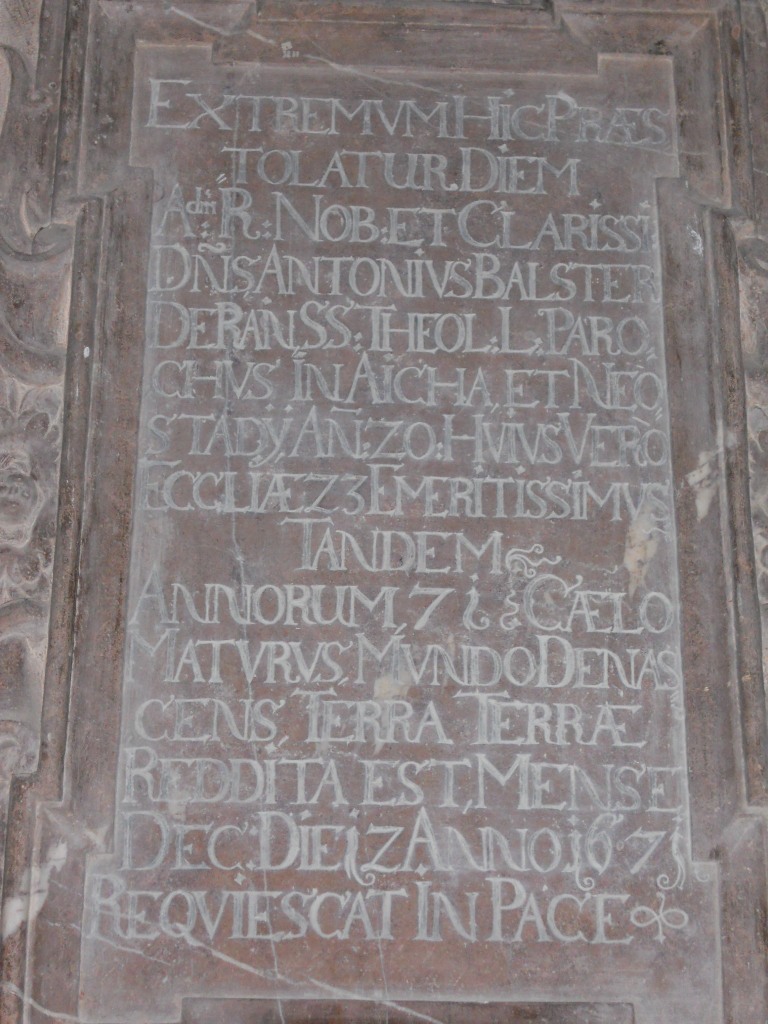 EXTREMVM HIC PRÆS
TOLATUR. DIEM
Adm̄ R: NOB: ET CLARISSI:
DN̄S ANTONIVS BALSTER
DE RAN SS: THEOL: L. PARO,
CHVS IN AICHA, ET NEO,
STADŸ, AN̄: 20: HVIVS VERÒ
ECCLIÆ 23 EMERITISSIMVS
TANDEM
ANNORUM, 71 CÆLO
MATVRVS, MVNDO DENAS
CENS, TERRA TERRÆ
REDDITA EST, MENSE
DEC: DIE 12 ANNO, 1671
REQVIESCAT IN PACE